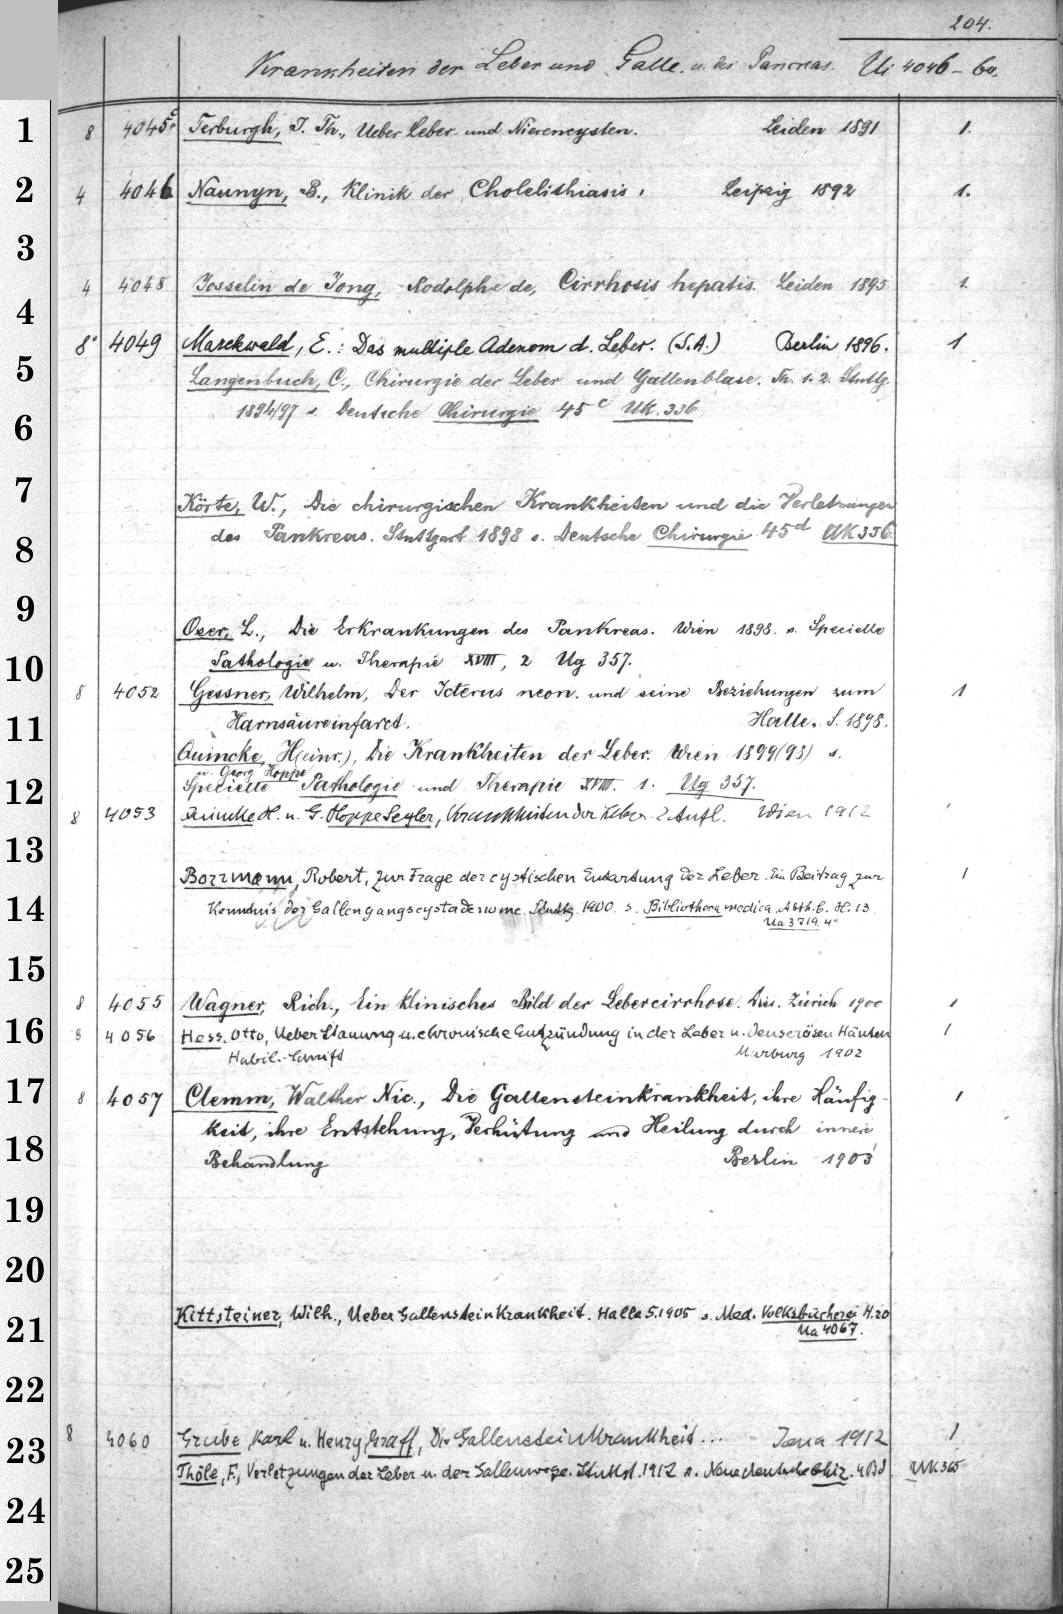 204.
Krankheiten der Leber und Galle. u. des Pancreas. Ui 4046 - 60.
1 8 4045a Terburgh, J. Th., Ueber Leber- und Nierencysten. Leiden 1891 1.
2 4 4046 Naunyn, B., Klinik der Cholelithiasis. Leipzig 1892 1.
3
4 4048 Josselin de Jong, Rodolphe de, Cirrhosis hepatis. Leiden 1895 1.
4
8° 4049 Marckwald, E.: Das multiple Adenom d. Leber. (S.A.) Berlin 1896. 1
5 Langenbuch, C., Chirurgie der Leber und Gallenblase. Th. 1. 2. Stuttg.
1894/97 s. Deutsche Chirurgie 45c Uk. 336
6
7
Körte, W., Die chirurgischen Krankheiten und die Verletzungen
8 des Pankreas. Stuttgart 1898 s. Deutsche Chirurgie 45d UK 336
9
Oser, L., Die Erkrankungen des Pankreas. Wien 1898. s. Specielle
10 Pathologie u. Therapie XVIII, 2 Ug 357.
8 4052 Gessner, Wilhelm, Der Icterus neon. und seine Beziehungen zum 1
11 Harnsäureinfarct. Halle, S. 1898.
Quincke, H(einr.), Die Krankheiten der Leber. Wien 1899(98) s.
u. Georg Hoppe
12 Specielle Pathologie und Therapie XVIII. 1. Ug 357.
8 4053 Quincke H. u. G. Hoppe Seyler, Krankheiten der Leber. 2 Aufl. Wien 1912
13
Borrmann, Robert, zur Frage der cystischen Entartung der Leber. Ein Beitrag zur 1
14 Kenntnis der Gallengangscystadenome. Stuttg. 1900. s. Bibliotheca medica, Abth. C. H. 13
Ua 3719. 4°
15
8 4055 Wagner, Rich., Ein klinisches Bild der Lebercirrhose. Diss. Zürich 1900 1
16 8 4056 Hess, Otto, Ueber Stauung u. chronische Entzündung in der Leber u. den serösen Häuten 1
Habil.-Schrift Marburg 1902
17 8 4057 Clemm, Walther Nic., Die Gallensteinkrankheit, ihre Häufig- 1
keit, ihre Entstehung, Verhütung und Heilung durch innere
18 Behandlung Berlin 1903
19
20
Kittsteiner, Wilh., Ueber Gallensteinkrankheit. Halle S. 1905 s. Med. Volksbücherei H. 20
21 Ua 4067.
22
8 4060 Grube, Karl u. Henry Graff, Die Gallensteinkrankheit ... Jena 1912 1
23
Thöle, F., Verletzungen der Leber u. der Gallenwege. Stuttg. 1912 s. Neue deutsche Chir. 4 Bd UK 365
24
25